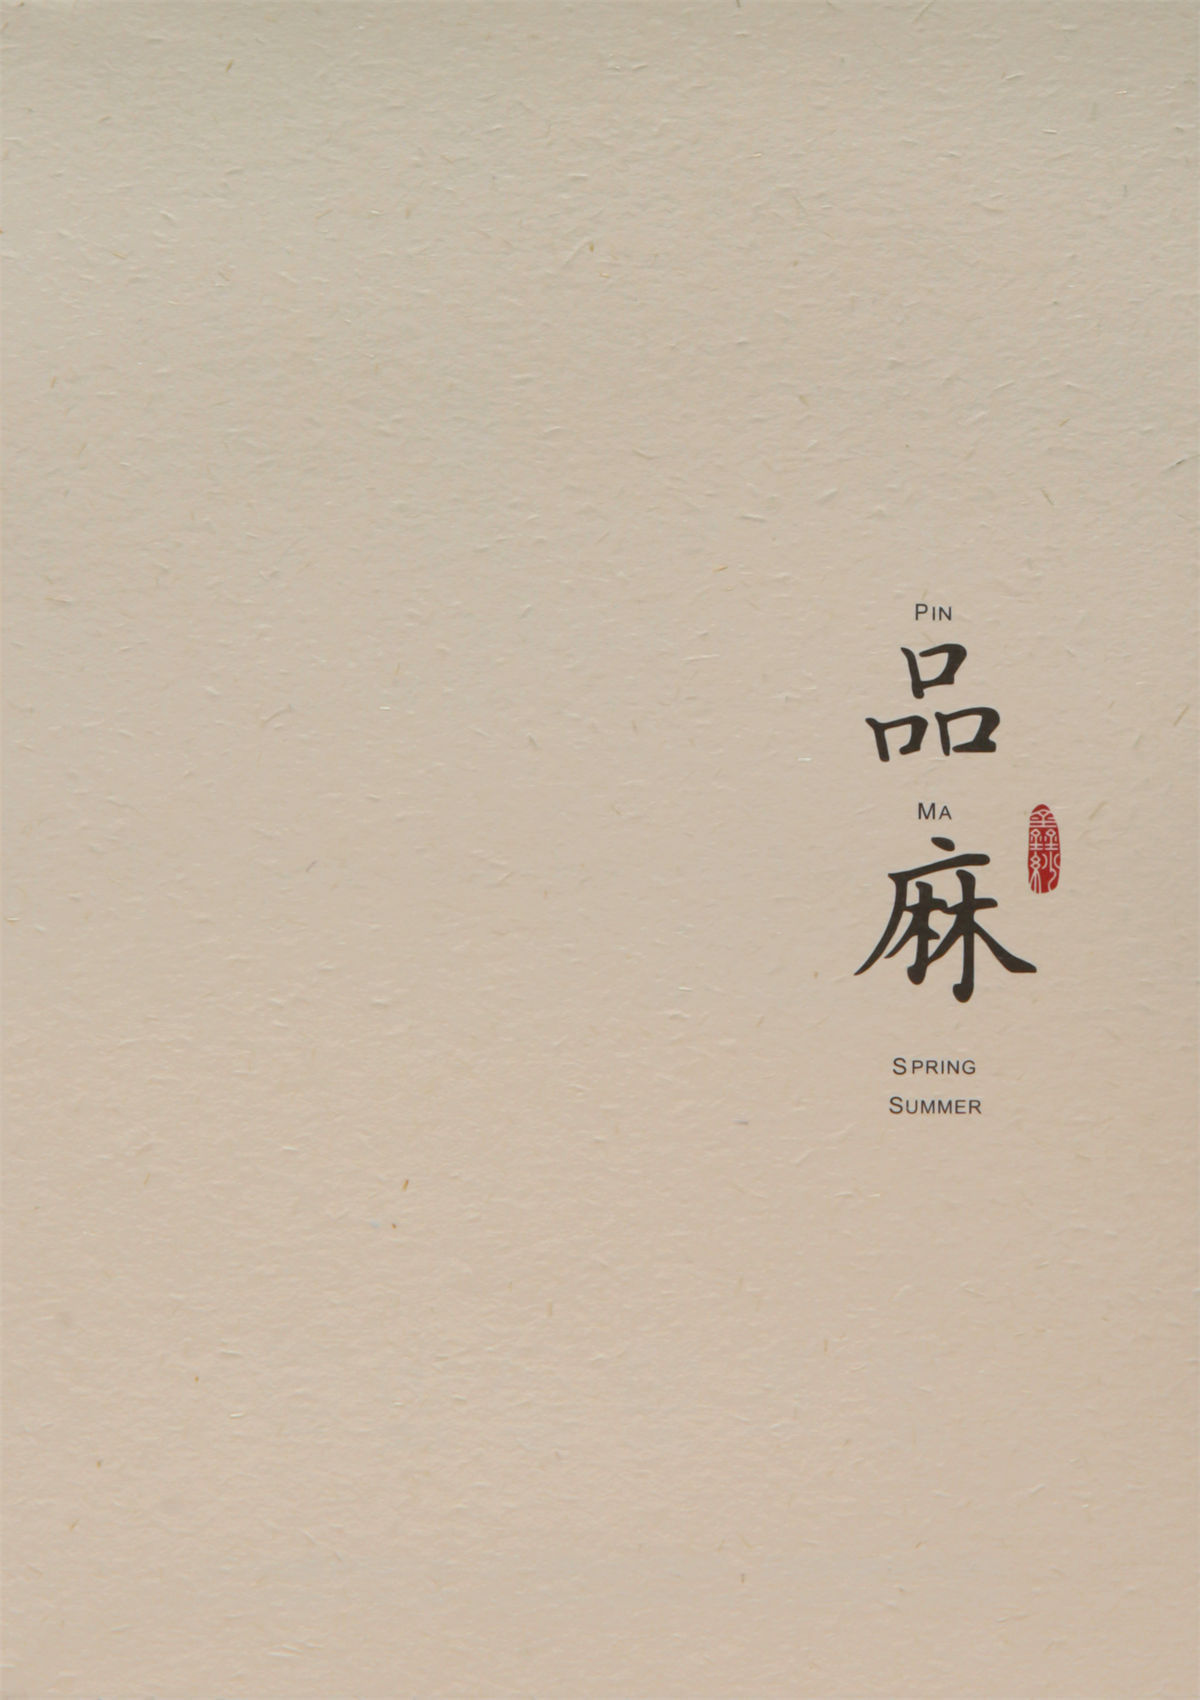 PIN
品
MA
麻
SPRING
SUMMER